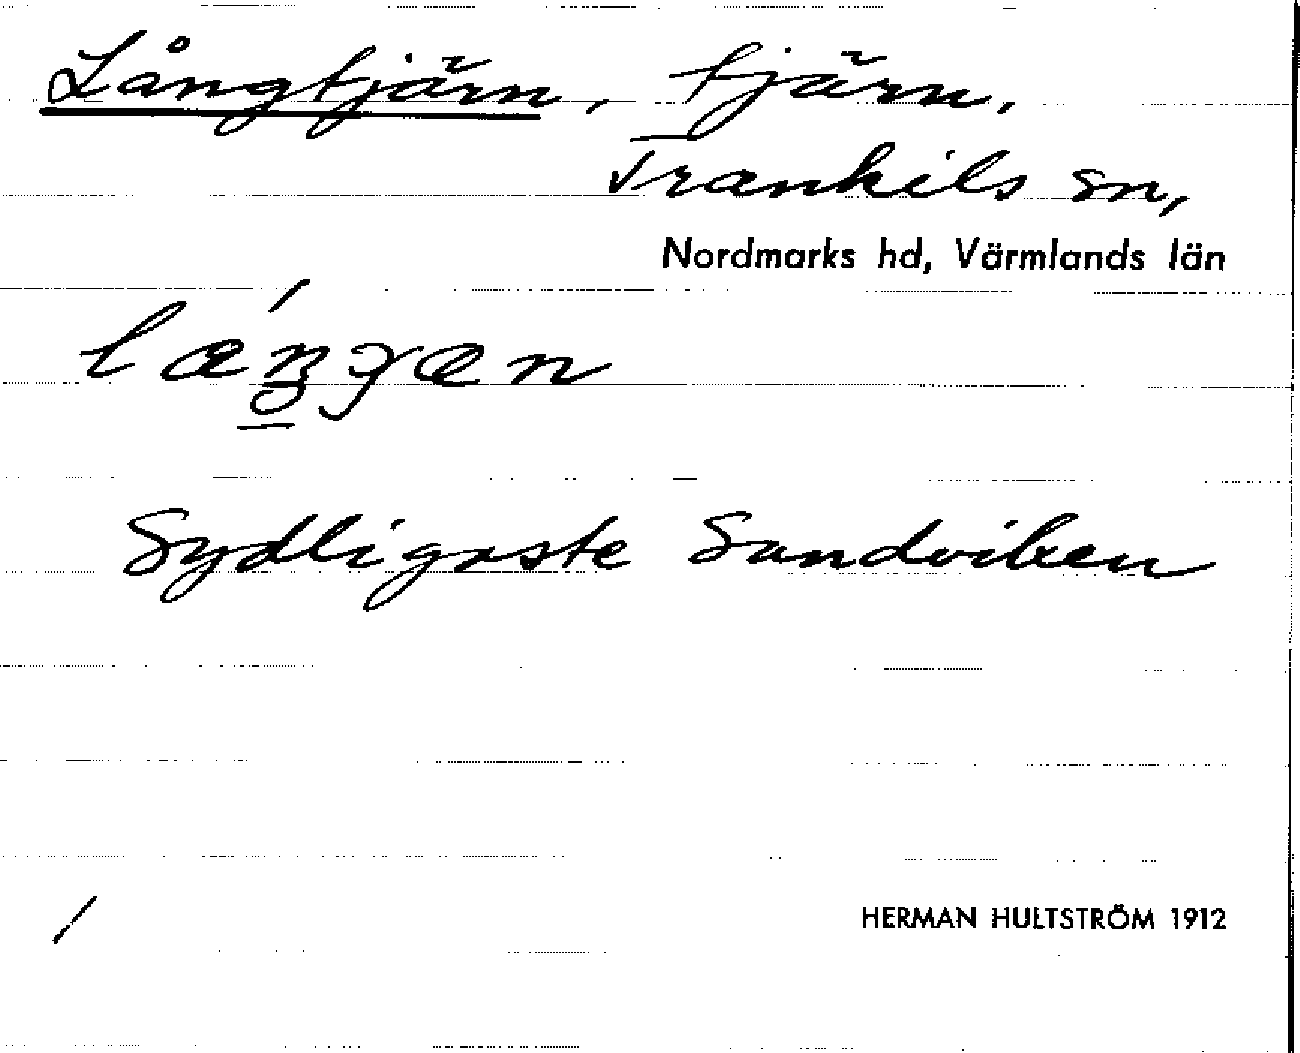 Långtjärn, tjärn,
Trankils sn,
Nordmarks hd, Värmlands län
Sydligaste Sundviken
HERMAN HULTSTRÖM 1912